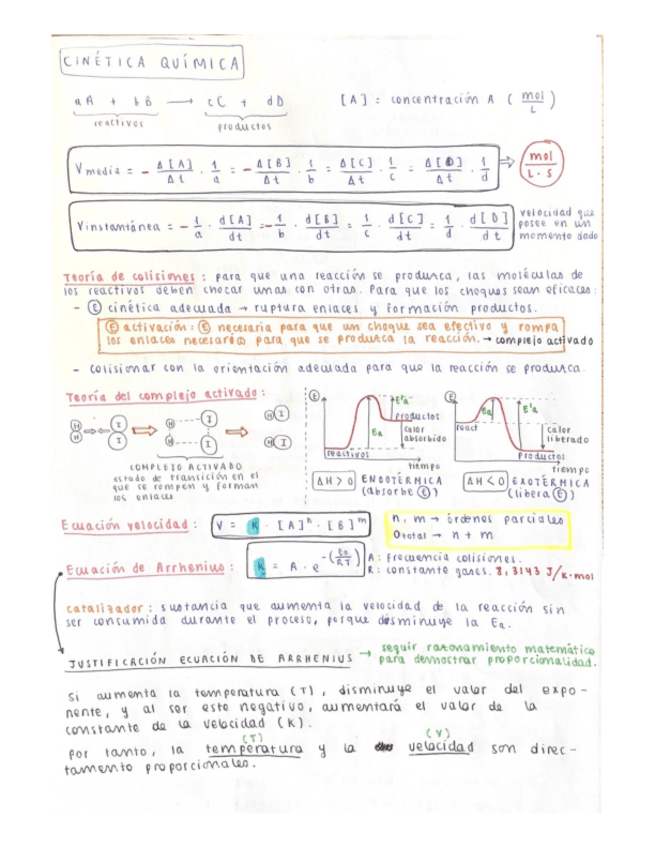 CINÉTICA QUÍMICA
aA + bB → cC + dD
[A] = concentración A (mol/L)
reactivos
productos
Vmedia = - Δ[A]/Δt · 1/a = - Δ[B]/Δt · 1/b = Δ[C]/Δt · 1/c = Δ[D]/Δt · 1/d ⇒ mol/L·s
Vinstantánea = - 1/a · d[A]/dt = - 1/b · d[B]/dt = 1/c · d[C]/dt = 1/d · d[D]/dt
velocidad que
posee en un
momento dado
Teoría de colisiones: para que una reacción se produzca, las moléculas de
los reactivos deben chocar unas con otras. Para que los choques sean eficaces:
- Ⓔ cinética adecuada → ruptura enlaces y formación productos.
Ⓔ activación: Ⓔ necesaria para que un choque sea efectivo y rompa
los enlaces necesari@ para que se produzca la reacción. → complejo activado
- Colisionar con la orientación adecuada para que la reacción se produzca.
Teoría del complejo activado:
H H I I
H H I I
H I
H I
COMPLEJO ACTIVADO
estado de transición en el
que se rompen y forman
los enlaces
Ⓔ
E'a
Productos
Ea
calor
absorbido
reactivos
tiempo
ΔH > 0 ENDOTÉRMICA
(absorbe Ⓔ)
Ⓔ
Ea
E'a
react
calor
liberado
Productos
tiempo
ΔH < 0 EXOTÉRMICA
(libera Ⓔ)
Ecuación velocidad: V = K · [A]ⁿ · [B]ᵐ
n, m → órdenes parciales
Ototal → n + m
Ecuación de Arrhenius: K = A · e^-(Ea/RT)
A: frecuencia colisiones.
R: constante gases. 8,3143 J/K·mol
Catalizador: sustancia que aumenta la velocidad de la reacción sin
ser consumida durante el proceso, porque disminuye la Ea.
JUSTIFICACIÓN ECUACIÓN DE ARRHENIUS → seguir razonamiento matemático
para demostrar proporcionalidad.
Si aumenta la temperatura (T), disminuye el valor del expo-
nente, y al ser este negativo, aumentará el valor de la
constante de la velocidad (K).
(T) (V)
Por tanto, la temperatura y la velocidad son direc-
tamente proporcionales.